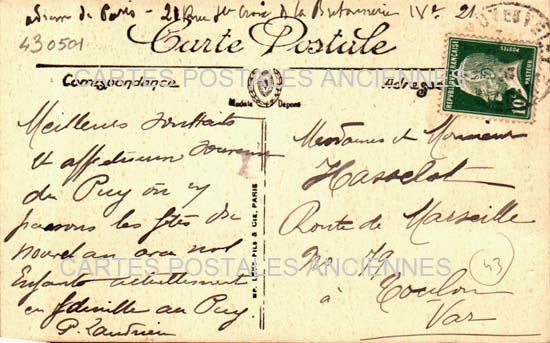 adresse de Paris - 21 Rue Ste Croix de la Bretonnerie IVe 21
430501
Carte Postale
CARTES POSTALES ANCIENNES
Correspondance
Adresse
Modèle Déposé
REPUBLIQUE FRANÇAISE
POSTES
PASTEUR
10c
Meilleurs souhaits
et affectueux souvenir
du Puy où ns
passons les fêtes du
nouvel an avec nos
Enfants actuellement
en famille au Puy.
P. Landrieu
LEVY FILS & Cie, PARIS
Mesdames et Monsieur
Hasselot
Route de Marseille
No 73
à Toulon
Var
43
CARTES POSTALES ANCIENNES